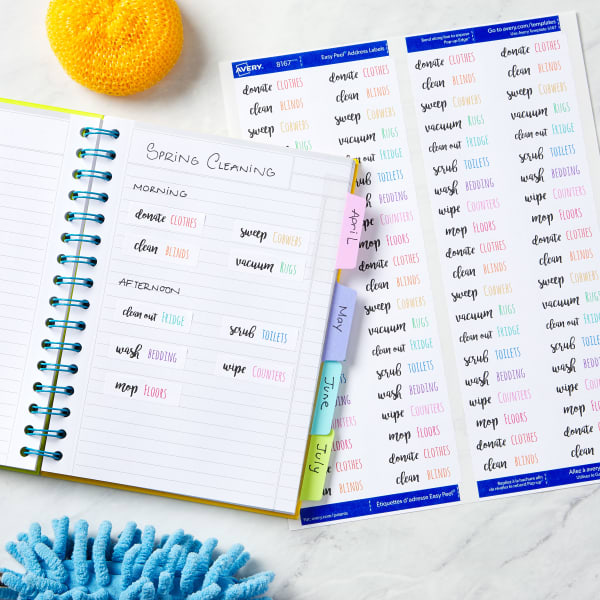 Spring Cleaning
MORNING
donate CLOTHES
sweep COBWEBS
clean BLINDS
vacuum RUGS
AFTERNOON
clean out FRIDGE
scrub TOILETS
wash BEDDING
wipe COUNTERS
mop FLOORS
April
May
June
July
AVERY
8167
Easy Peel Address Labels
donate CLOTHES
clean BLINDS
sweep COBWEBS
FLOORS
CLOTHES
BLINDS
donate CLOTHES
clean BLINDS
sweep COBWEBS
vacuum RUGS
clean out FRIDGE
scrub TOILETS
wash BEDDING
wipe COUNTERS
mop FLOORS
donate CLOTHES
clean BLINDS
sweep COBWEBS
vacuum RUGS
clean out FRIDGE
scrub TOILETS
wash BEDDING
wipe COUNTERS
mop FLOORS
donate CLOTHES
clean BLINDS
Étiquettes d'adresse Easy Peel
Go to avery.com/templates
Use Avery Template 8167
donate CLOTHES
clean BLINDS
sweep COBWEBS
vacuum RUGS
clean out FRIDGE
scrub TOILETS
wash BEDDING
wipe COUNTERS
mop FLOORS
donate CLOTHES
clean BLINDS
sweep COBWEBS
vacuum RUGS
clean out FRIDGE
scrub TOILETS
wash BEDDING
wipe COUNTERS
mop FLOORS
donate CLOTHES
clean BLINDS
donate CLOTHES
clean BLINDS
sweep COBWEBS
vacuum RUGS
clean out FRIDGE
scrub TOILETS
wash BEDDING
wipe COUNTERS
mop FLOORS
donate CLOTHES
clean BLINDS
sweep COBWEBS
vacuum RUGS
clean out FRIDGE
scrub TOILETS
wash BEDDING
wipe COUNTERS
mop FLOORS
donate CLOTHES
clean BLINDS
Allez à avery